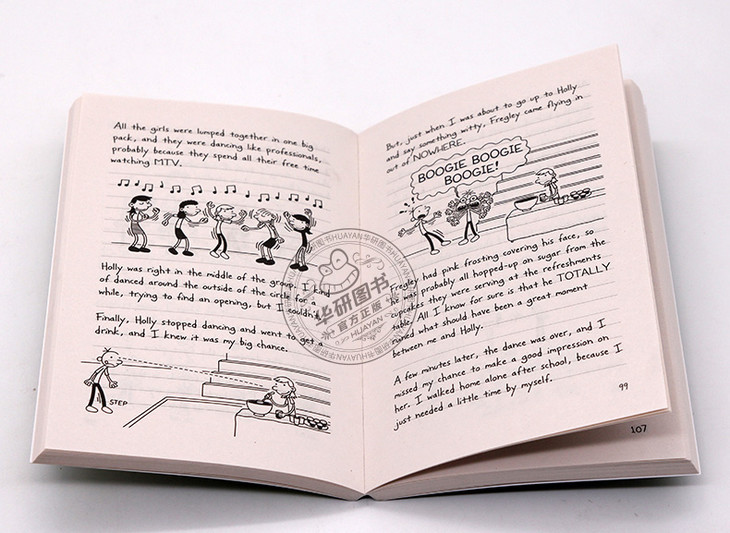 All the girls were lumped together in one big
pack, and they were dancing like professionals,
probably because they spend all their free time
watching MTV.
Holly was right in the middle of the group. I kind
of danced around the outside of the circle for a
while, trying to find an opening, but I couldn't
Finally, Holly stopped dancing and went to get a
drink, and I knew it was my big chance.
STEP
But, just when I was about to go up to Holly
and say something witty, Fregley came flying in
out of NOWHERE.
BOOGIE BOOGIE
BOOGIE!
Fregley had pink frosting covering his face, so
was probably all hopped-up on sugar from the
cupcakes they were serving at the refreshments
table. All I know for sure is that he TOTALLY
ruined what should have been a great moment
between me and Holly.
A few minutes later, the dance was over, and I
missed my chance to make a good impression on
her. I walked home alone after school, because I
just needed a little time by myself.
99
107
华研图书HUAYAN
华研图书
官方正版
HUAYAN